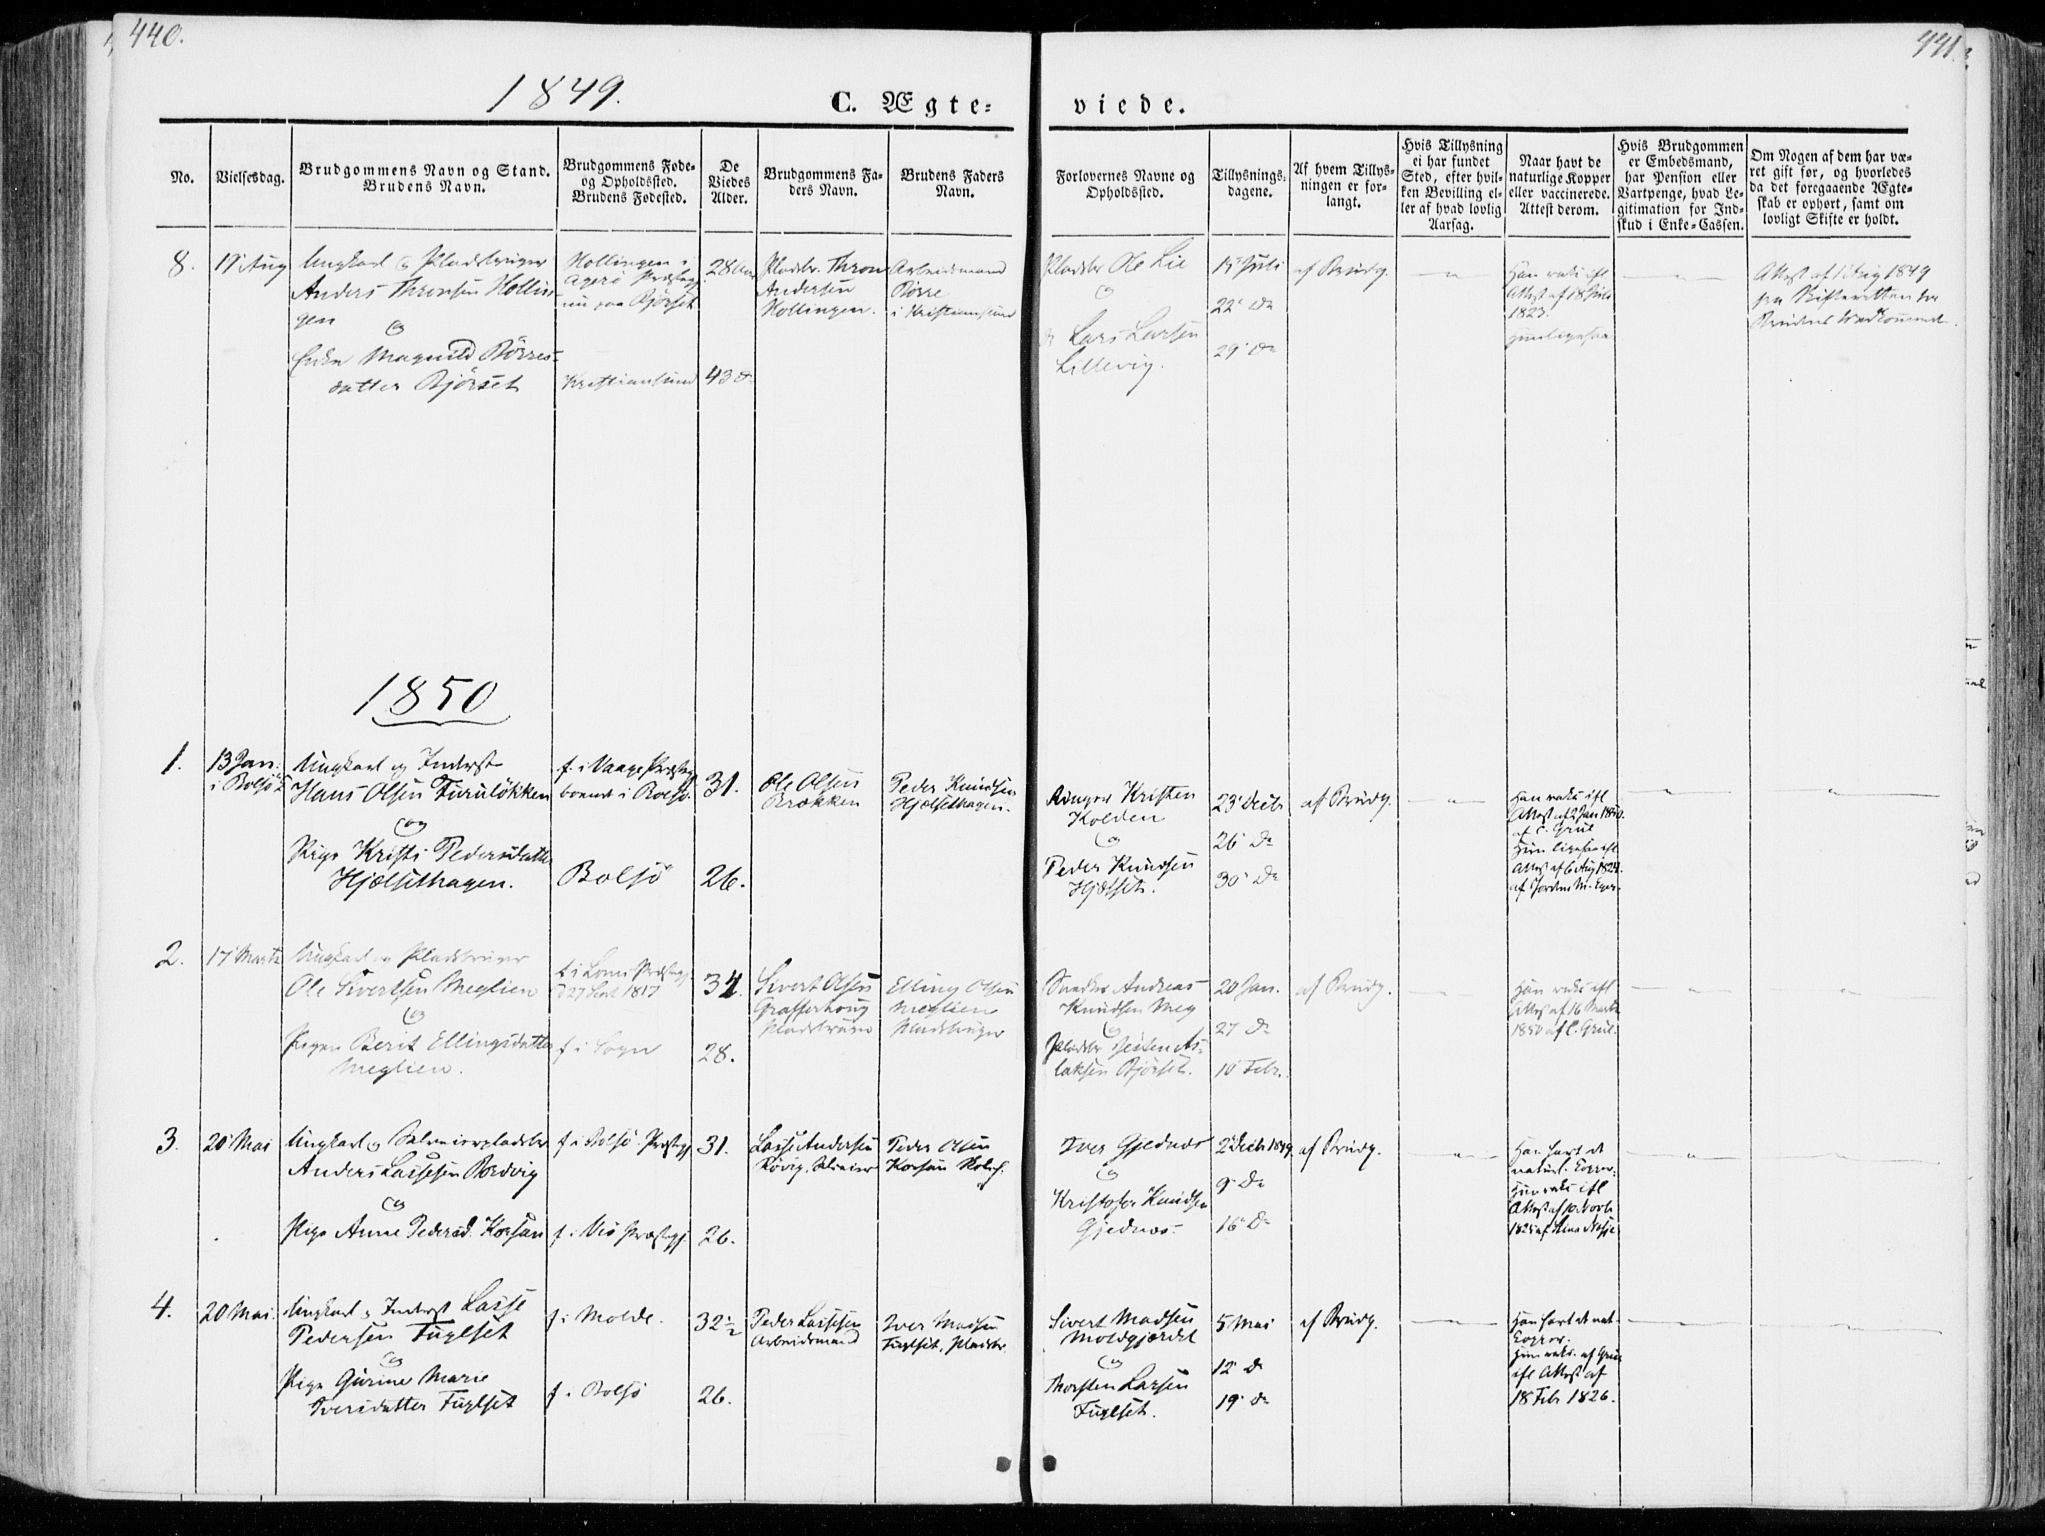 440.
441.
1849.
C. Ægte-
viede.
No.
Vielsesdag.
Brudgommens Navn og Stand.
Brudens Navn.
Brudgommens Føde-
og Opholdssted.
Brudens Fødested.
De
Viedes
Alder.
Brudgommens Fa-
ders Navn.
Brudens Faders
Navn.
Forlovernes Navne og
Opholdssted.
Tillysnings-
dagene.
Af hvem Tillys-
ningen er for-
langt.
Hvis Tillysning
ei har fundet
Sted, efter hvil-
ken Bevilling el-
ler af hvad lovlig
Aarsag.
Naar havt de
naturlige Kopper
eller vaccinerede.
Attest derom.
Hvis Brudgommen
er Embedsmand,
har Pension eller
Vartpenge, hvad Le-
gitimation for Ind-
skud i Enke-Cassen.
Om Nogen af dem har væ-
ret gift før, og hvorledes
da det foregaaende Ægte-
skab er ophørt, samt om
lovligt Skifte er holdt.
8.
19 Aug
Ungkarl og Pladsbruger
Anders Thronsen Hollin-
gen
og
Enke Magnild Børres-
datter Bjørset
Hollingen i
Agerø Præstegj
nu paa Bjørset
Kristiansund
28 Aar
43 d
Pladsbr. Thron
Andersen
Hollingen.
Arbeidsmand
Børre
i Kristiansund
Pladsbr Ole Lie
og
Lars Larsen
Lillevig.
15 Juli
22 do
29 do
af Brudg.
Han vaks ifl
Attest af 18 Juli
1823.
Hun ligesaa
Attest af 1 Aug 1849
fra Skifteretten for
Brudens Vedkommende.
1850
1.
13 Jan.
i Bolsø K
Ungkarl og Inderst
Hans Olsen Furuløkken
og
Pige Kristi Pedersdatter
Hjælsethagen.
f. i Vaage Præstegj
boende i Bolsø.
Bolsø
31.
26.
Ole Olsen
Brækken
Peder Knudsen
Hjælsethagen.
Ringer Kristen
Kolden
og
Peder Knudsen
Hjælset.
23 Decb
26 do
30 do
af Brudg.
Han vaks ifl
Attest af 2 Jan 1850.
af C. Grul
Hun ligesaa ifl
Attest af 6 Aug 1824.
2.
17 Marts
Ungkarl og Pladsbruger
Ole Sivertsen Meglien
og
Pigen Berit Ellingsdatter
Meglien.
f i Loms Præstegj
d 27 Sept 1817
f i Sogn
34.
28.
Sivert Olsen
Pladsbruger
Elling Olsen
Meglien
Pladsbruger
Andreas
Knudsen Meg
og
Pladsbr As-
laksen Bjørset.
20 Jan.
27 do
10 Febr.
af Brudg.
Han vaks ifl
Attest af 16 Marts
1850 af C. Grul.
3.
20 Mai
Ungkarl og Selveierpladsbr
Anders Lassesen Bordvig
og
Pige Anne Pedersd. Korsan
f i Bolsø Præstegj
f. i Veø Præstegj.
31.
26.
Lasse Andersen
Røvig, Selveier
Peder Olsen
Korsan
Iver Gjednæs
og
Kristofer Knudsen
Gjednæs.
2 Decb 1849
9 do
16 do
af Brudg.
Han havt de
naturl. Copper.
Hun vaks ifl
Attest af
4.
20 Mai.
Ungkarl og Inderst Lasse
Pedersen Fuglset
og
Pige Gurine Marie
Iversdatter Fuglset
f. i Molde.
f. i Bolsø
32½
26.
Peder Lassesen
Arbeidsmand
Iver Madsen
Fuglset, Pladsbr.
Sivert Madsen
Moldegjærdet
og
Thorsten Larsen
Fuglset.
5 Mai
12 do
19 do
af Brudg.
Han havt de nat.
Copper.
Hun vaks. af Grul
ifl Attest af
18 Febr 1826.